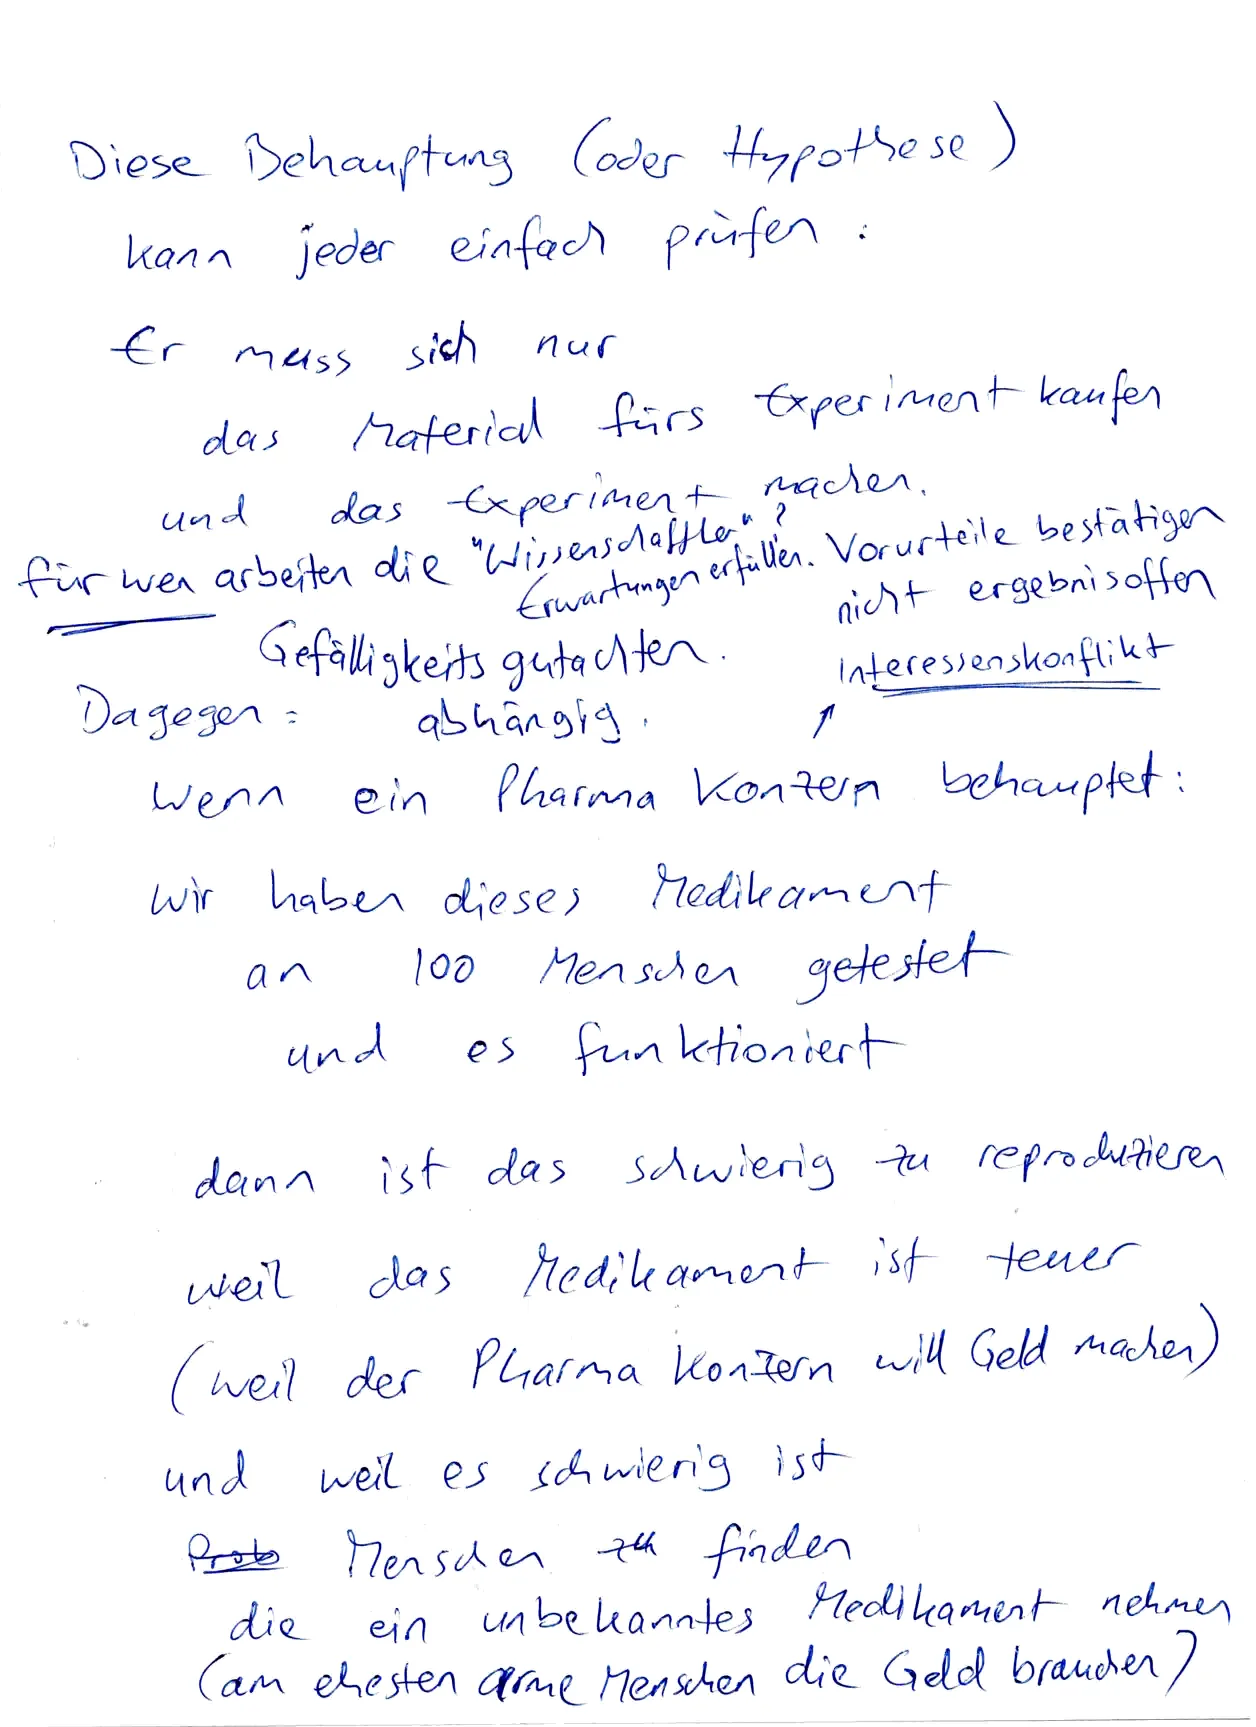 Diese Behauptung (oder Hypothese)
kann jeder einfach prüfen:
Er muss sich nur
das Material fürs Experiment kaufen
und das Experiment machen.
für wen arbeiten die "Wissenschaftler"?
Erwartungen erfüllen. Vorurteile bestätigen
nicht ergebnisoffen
Gefälligkeitsgutachten.
Interessenskonflikt
Dagegen: abhängig.
wenn ein Pharma Konzern behauptet:
wir haben dieses Medikament
an 100 Menschen getestet
und es funktioniert
dann ist das schwierig zu reproduzieren
weil das Medikament ist teuer
(weil der Pharma Konzern will Geld machen)
und weil es schwierig ist
Prob Menschen zu finden
die ein unbekanntes Medikament nehmen
(am ehesten arme Menschen die Geld brauchen)